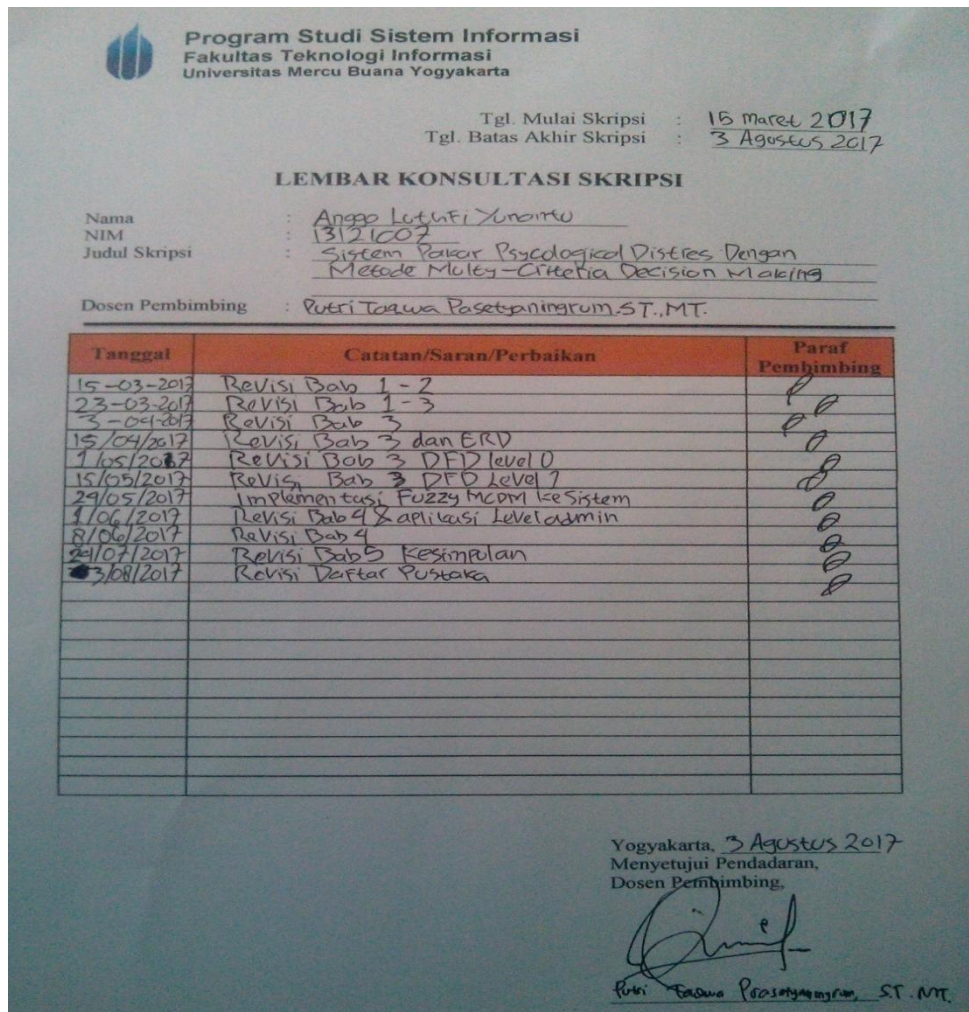 Program Studi Sistem Informasi
Fakultas Teknologi Informasi
Universitas Mercu Buana Yogyakarta
Tgl. Mulai Skripsi : 15 maret 2017
Tgl. Batas Akhir Skripsi : 3 Agustus 2017
LEMBAR KONSULTASI SKRIPSI
Nama : Anggo Luthfi Yunanto
NIM : 13121007
Judul Skripsi : Sistem Pakar Psycological Distres Dengan
Metode Multy-Criteria Decision Making
Dosen Pembimbing : Putri Taqwa Pasetyaningrum.ST.,MT.
Tanggal Catatan/Saran/Perbaikan Paraf Pembimbing
15-03-2017 Revisi Bab 1 - 2
23-03-2017 Revisi Bab 1 - 3
3-04-2017 Revisi Bab 3
15/04/2017 Revisi Bab 3 dan ERD
1/05/2017 Revisi Bab 3 DFD level 0
15/05/2017 Revisi Bab 3 DFD Level 1
29/05/2017 Implementasi Fuzzy MCDM ke Sistem
1/06/2017 Revisi Bab 4 & aplikasi Level admin
8/06/2017 Revisi Bab 4
29/07/2017 Revisi Bab 5 Kesimpulan
3/08/2017 Revisi Daftar Pustaka
Yogyakarta, 3 Agustus 2017
Menyetujui Pendadaran,
Dosen Pembimbing,
Putri Taqwa Prasetyaningrum, S.T. MT.